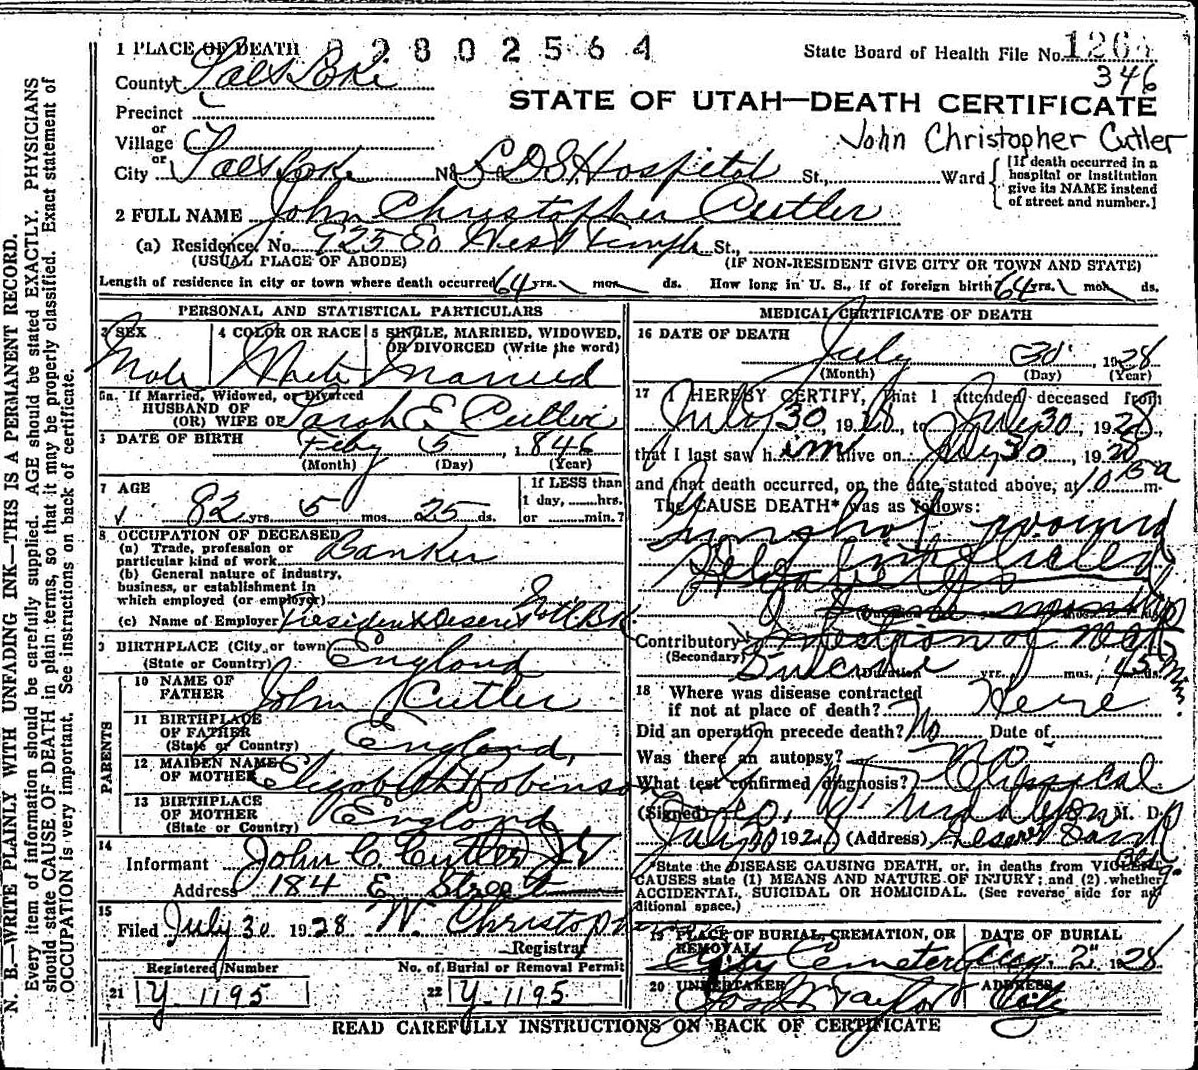 N. B.—WRITE PLAINLY WITH UNFADING INK—THIS IS A PERMANENT RECORD.
Every item of information should be carefully supplied. AGE should be stated EXACTLY. PHYSICIANS
should state CAUSE OF DEATH in plain terms, so that it may be properly classified. Exact statement of
OCCUPATION is very important. See instructions on back of certificate.
1 PLACE OF DEATH
2802564
State Board of Health File No. 126
346
County Salt Lake
STATE OF UTAH—DEATH CERTIFICATE
Precinct
John Christopher Cutler
or
Village
or
City Salt Lake No. L D S Hospital St., Ward
[If death occurred in a
hospital or institution
give its NAME instead
of street and number.]
2 FULL NAME John Christopher Cutler
(a) Residence, No. 925 So West Temple St.,
(USUAL PLACE OF ABODE) (IF NON-RESIDENT GIVE CITY OR TOWN AND STATE)
Length of residence in city or town where death occurred 64 yrs. mos. ds. How long in U. S., if of foreign birth 64 yrs. mos. ds.
PERSONAL AND STATISTICAL PARTICULARS
3 SEX
Male
4 COLOR OR RACE
White
5 SINGLE, MARRIED, WIDOWED,
OR DIVORCED (Write the word)
Married
5a. If Married, Widowed, or Divorced
HUSBAND OF
(OR) WIFE OF Sarah E Cutler
6 DATE OF BIRTH Feby 5, 1846
(Month) (Day) (Year)
7 AGE
82 yrs. 5 mos. 25 ds.
If LESS than
1 day, hrs.
or min.?
8 OCCUPATION OF DECEASED
(a) Trade, profession or
particular kind of work Banker
(b) General nature of industry,
business, or establishment in
which employed (or employer)
(c) Name of Employer President Deseret Natl Bk
9 BIRTHPLACE (City or town)
(State or Country) England
PARENTS
10 NAME OF
FATHER John Cutler
11 BIRTHPLACE
OF FATHER
(State or Country) England,
12 MAIDEN NAME
OF MOTHER Elizabeth Robinson
13 BIRTHPLACE
OF MOTHER
(State or Country) England
14
Informant John C. Cutler Jr
Address 184 E Street
15
Filed July 30 1928 W. Christopherson
Registrar
Registered Number
21 Y-1195
No. of Burial or Removal Permit
22 Y-1195
MEDICAL CERTIFICATE OF DEATH
16 DATE OF DEATH
July 30, 1928
(Month) (Day) (Year)
17 I HEREBY CERTIFY, that I attended deceased from
July 30, 1928, to July 30, 1928
that I last saw him alive on July 30, 1928
and that death occurred, on the date stated above, at 10 15 a m.
The CAUSE DEATH* was as follows:
Gunshot wound
Self inflicted
Contributory
(Secondary)
Suicide (Duration yrs. mos. 45 ds. Min.
18 Where was disease contracted
if not at place of death? Here
Did an operation precede death? No Date of
Was there an autopsy? No
What test confirmed diagnosis? Clinical
(Signed) M. D.
July 30 1928 (Address) Deseret Bank
Bldg.
*State the DISEASE CAUSING DEATH, or, in deaths from VIOLENT
CAUSES state (1) MEANS AND NATURE OF INJURY; and (2) whether
ACCIDENTAL, SUICIDAL OR HOMICIDAL. (See reverse side for ad-
ditional space.)
19 PLACE OF BURIAL, CREMATION, OR
REMOVAL
City Cemetery
DATE OF BURIAL
Aug. 2" 1928
20 UNDERTAKER
Jos. Wm Taylor
ADDRESS
City
READ CAREFULLY INSTRUCTIONS ON BACK OF CERTIFICATE